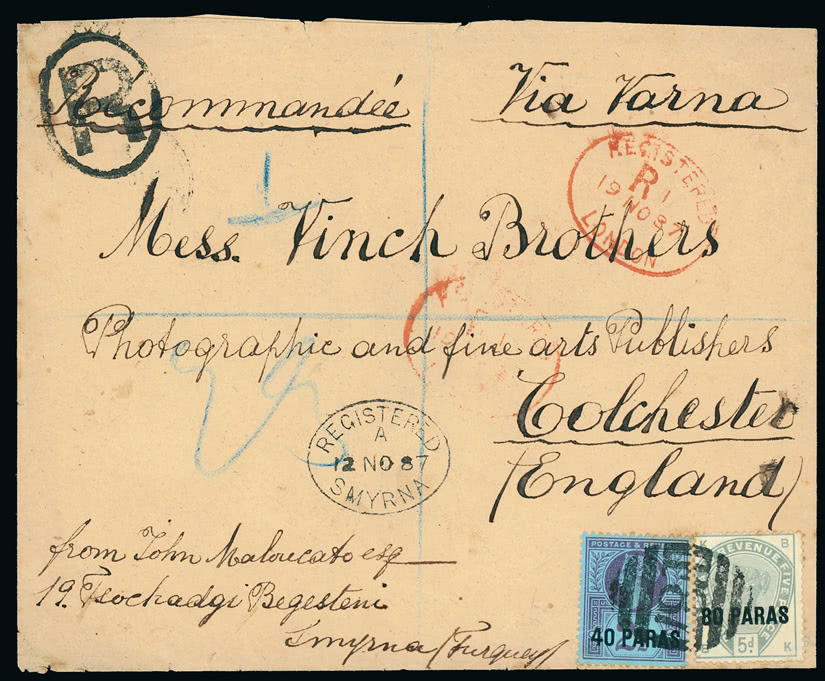 R
Recommandée Via Varna
REGISTERED
R 1
19 NO 87
LONDON
1
Mess. Vinch Brothers
Photographic and fine arts Publishers
Colchester
(England)
REGISTERED
A
12 NO 87
SMYRNA
from John Maloucato esq
19. Tsochadgi Begesteni
Smyrna (Turquey)
POSTAGE &
40 PARAS
K B
REVENUE FIVE
80 PARAS
5d
K